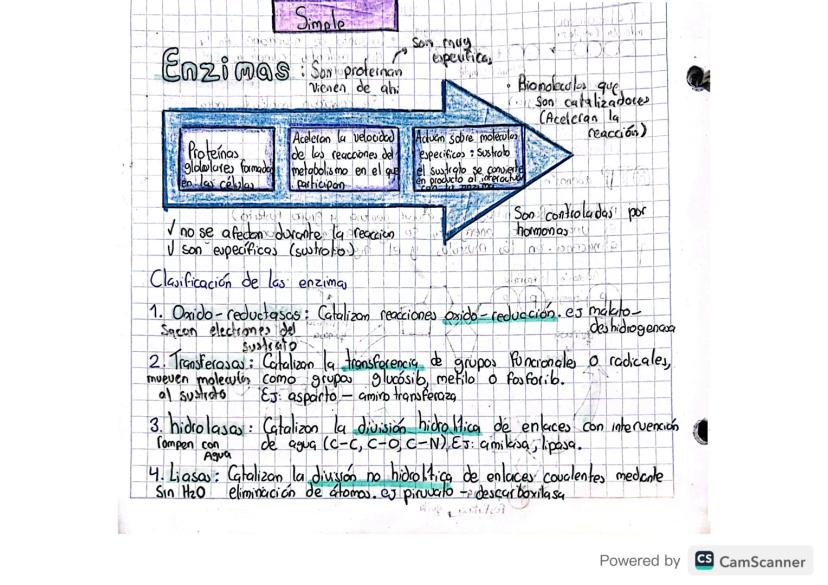 Simple
Enzimas : Son proteinan
vienen de ahi
son muy
especificas
• Biomoleculas que
son catalizadores
(Aceleran la
reacción)
Proteínas
globulares formadas
en las células
Aceleran la velocidad
de las reacciones del
metabolismo en el que
participan
Actúan sobre moleculas
especificas : Sustrato
el sustrato se convierte
en producto al interactuar
con la enzima
Son controladas por
hormonas
✓ no se afectan durante la reaccion
✓ son específicas (sustrato)
Clasificación de las enzimas
1. Oxido-reductasas: Catalizan reacciones oxido-reducción. ej malato-
deshidrogenasa
Sacan electrones del
sustrato
2. Transferasas: Catalizan la transferencia de grupos funcionales o radicales,
mueven moleculas como grupos glucósib, metilo o fosforib.
al sustrato EJ: asparto - amino transferaza
3. hidrolasas: Catalizan la división hidrolítica de enlaces con intervención
rompen con de agua (C-C, C-O, C-N), EJ: amilasa, lipasa.
Agua
4. Liasas: Catalizan la división no hidrolítica de enlaces covalentes mediante
Sin H2O eliminación de átomos. ej piruvato - descarboxilasa
Powered by CS CamScanner